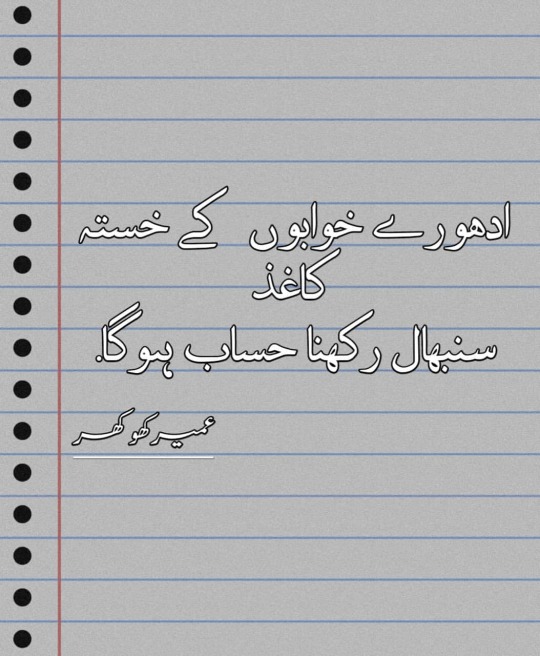 ادھورے خوابوں کے خستہ
کاغذ
سنبھال رکھنا حساب ہوگا.
عمیر کھوکھر